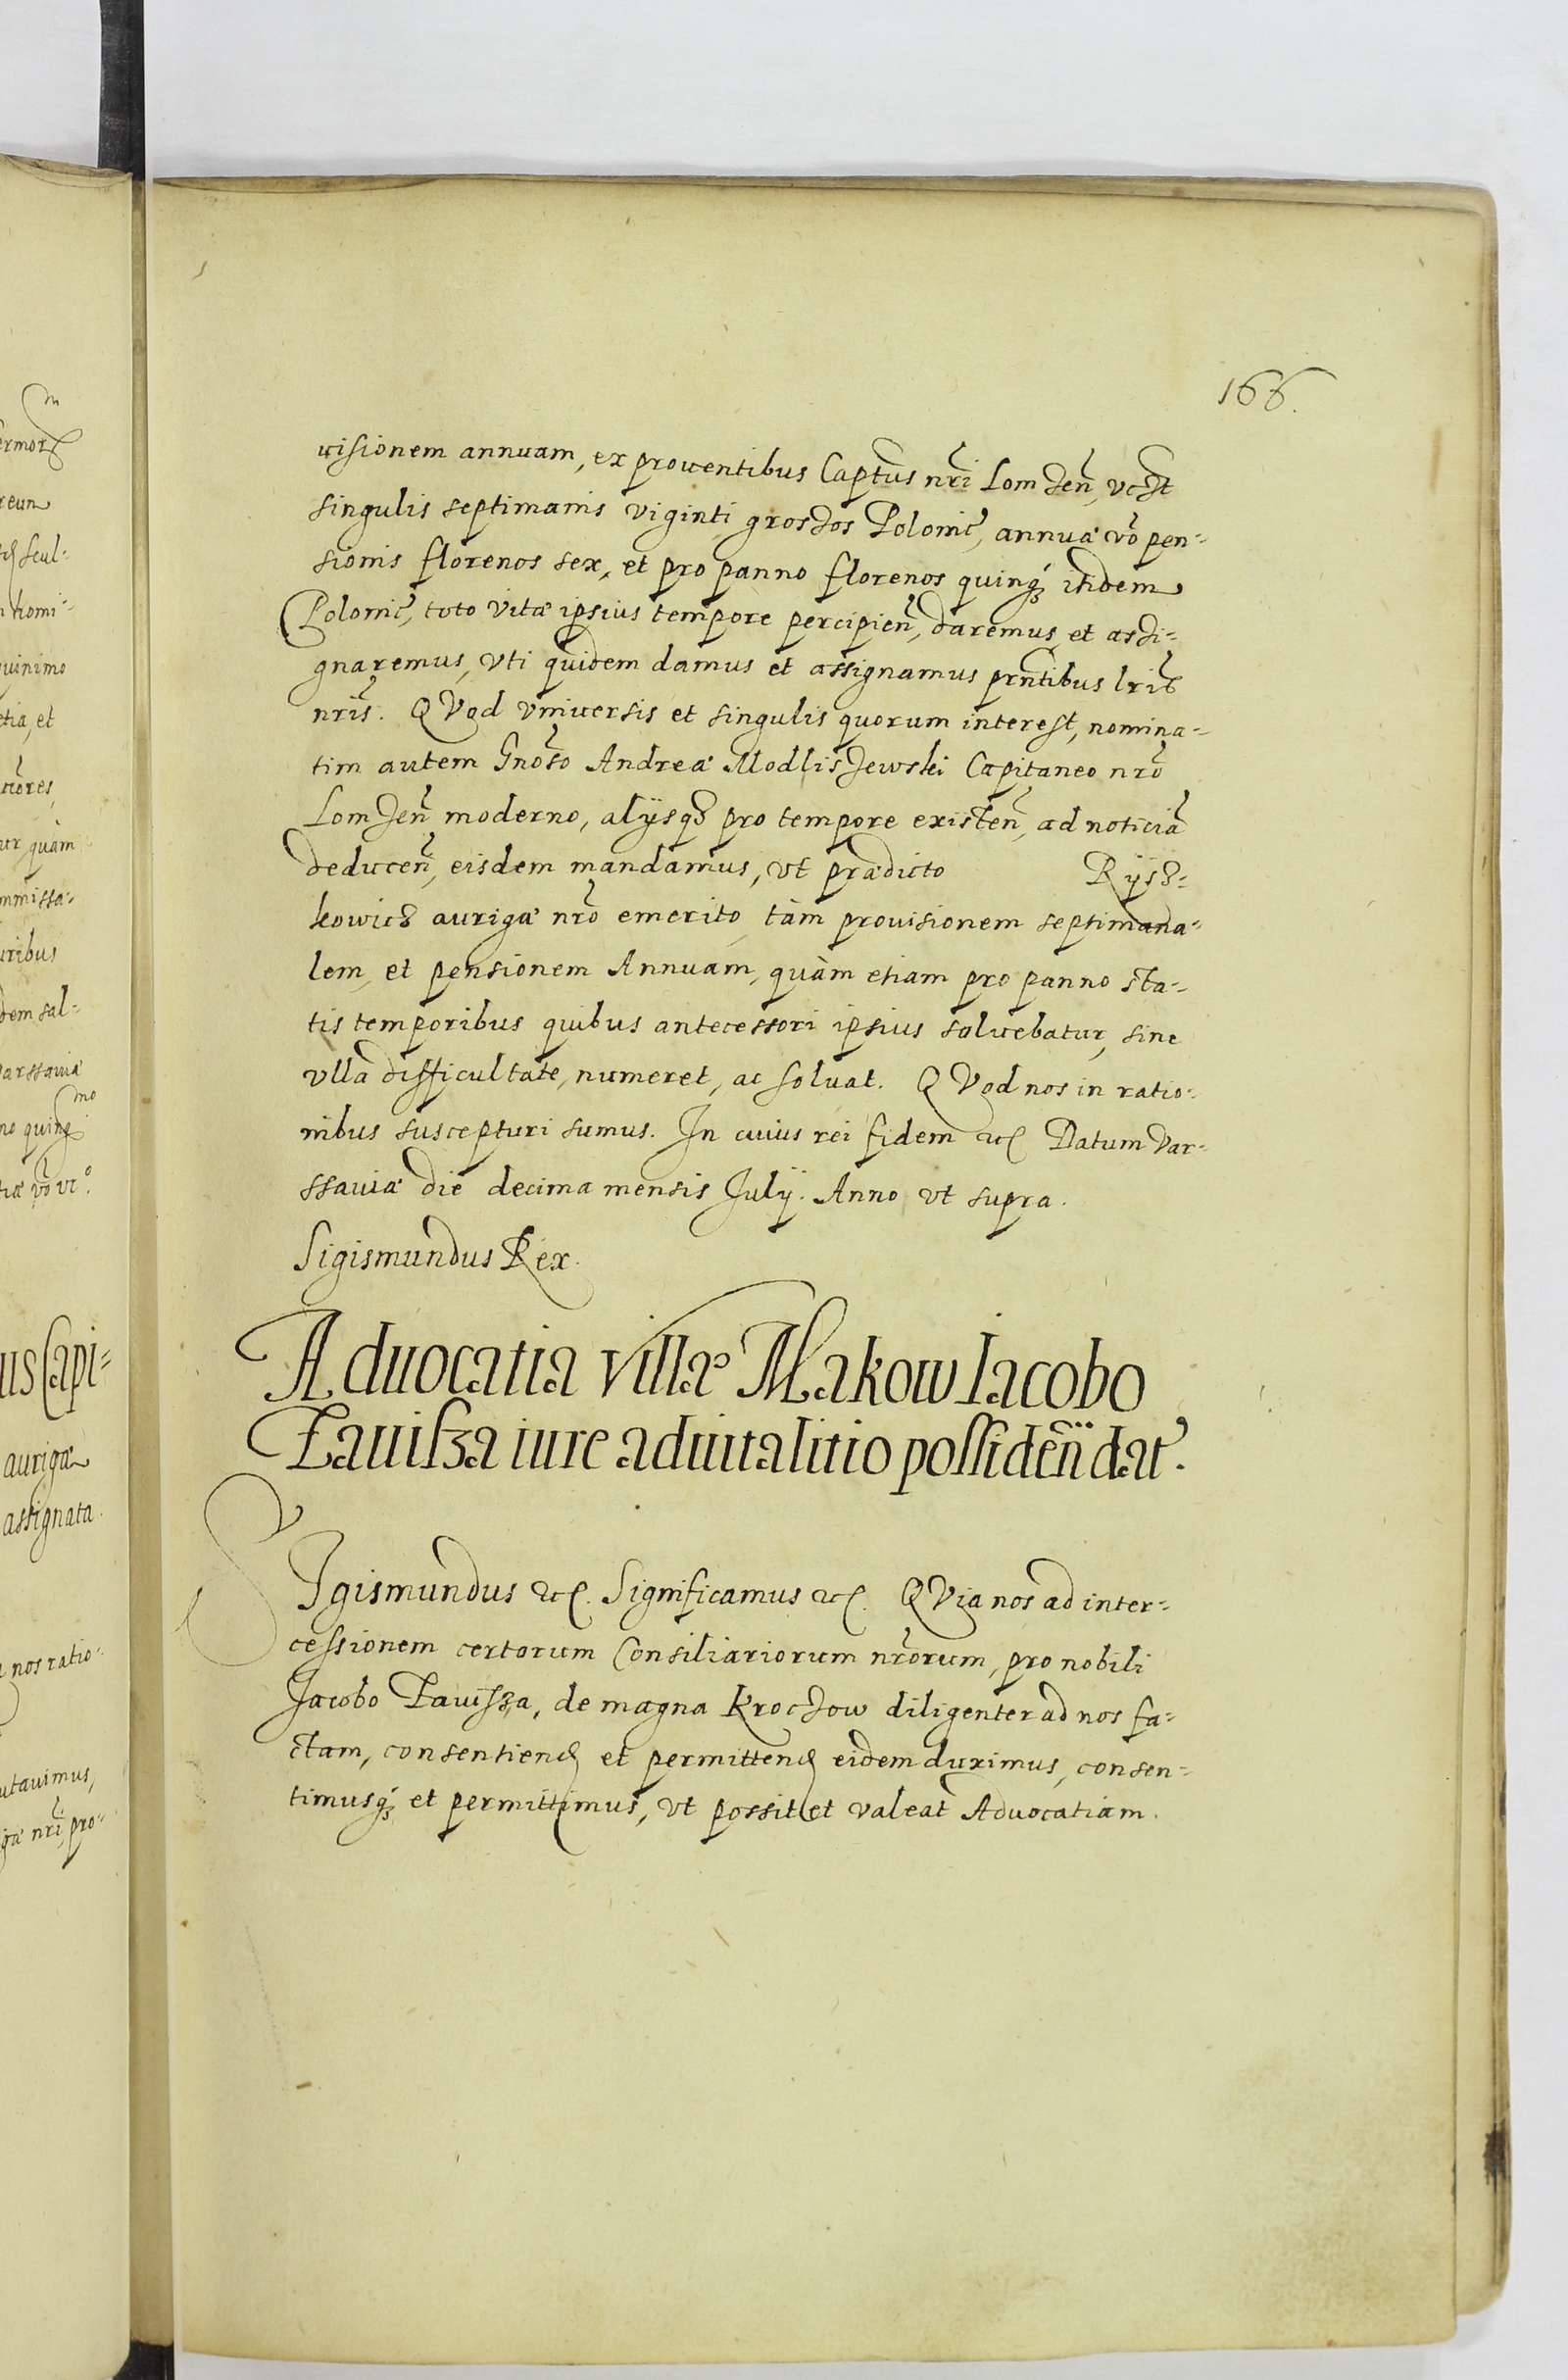 166.
uisionem annuam, ex prouentibus Captus nri Lomzen, vczt
singulis septimanis viginti grossos Polonic, annuæ vo pen-
sionis florenos sex, et pro panno florenos quinq itidem
Polonic, toto vitæ ipsius tempore percipien, daremus et assi-
gnaremus, vti quidem damus et assignamus prntibus lris
nris. QVod vniuersis et singulis quorum interest, nomina-
tim autem Gnoso Andreæ Modliszewski Capitaneo nro
Lomzen moderno, alijsq pro tempore existen, ad noticia
deducen, eisdem mandamus, vt prædicto Rijss-
kowicz aurigæ nro emerito tàm prouisionem septimana-
lem, et pensionem Annuam, quàm etiam pro panno sta-
tis temporibus quibus antecessori ipsius soluebatur, sine
vlla difficultate, numeret, ac soluat. QVod nos in ratio-
nibus suscepturi sumus. In cuius rei fidem etc Datum Var-
ssauiæ die decima mensis Julij. Anno vt supra.
Sigismundus Rex.
Aduocatia villæ Makow Iacobo
Lauisza iure aduitalitio possiden dat.
SIgismundus etc. Significamus etc. QVia nos ad inter-
cessionem certorum Consiliariorum nrorum, pro nobili
Jacobo Lauisza, de magna Kroczow diligenter ad nos fa-
ctam, consentiend et permittend eidem duximus, consen-
timusq et permittimus, vt possit et valeat Aduocatiam.